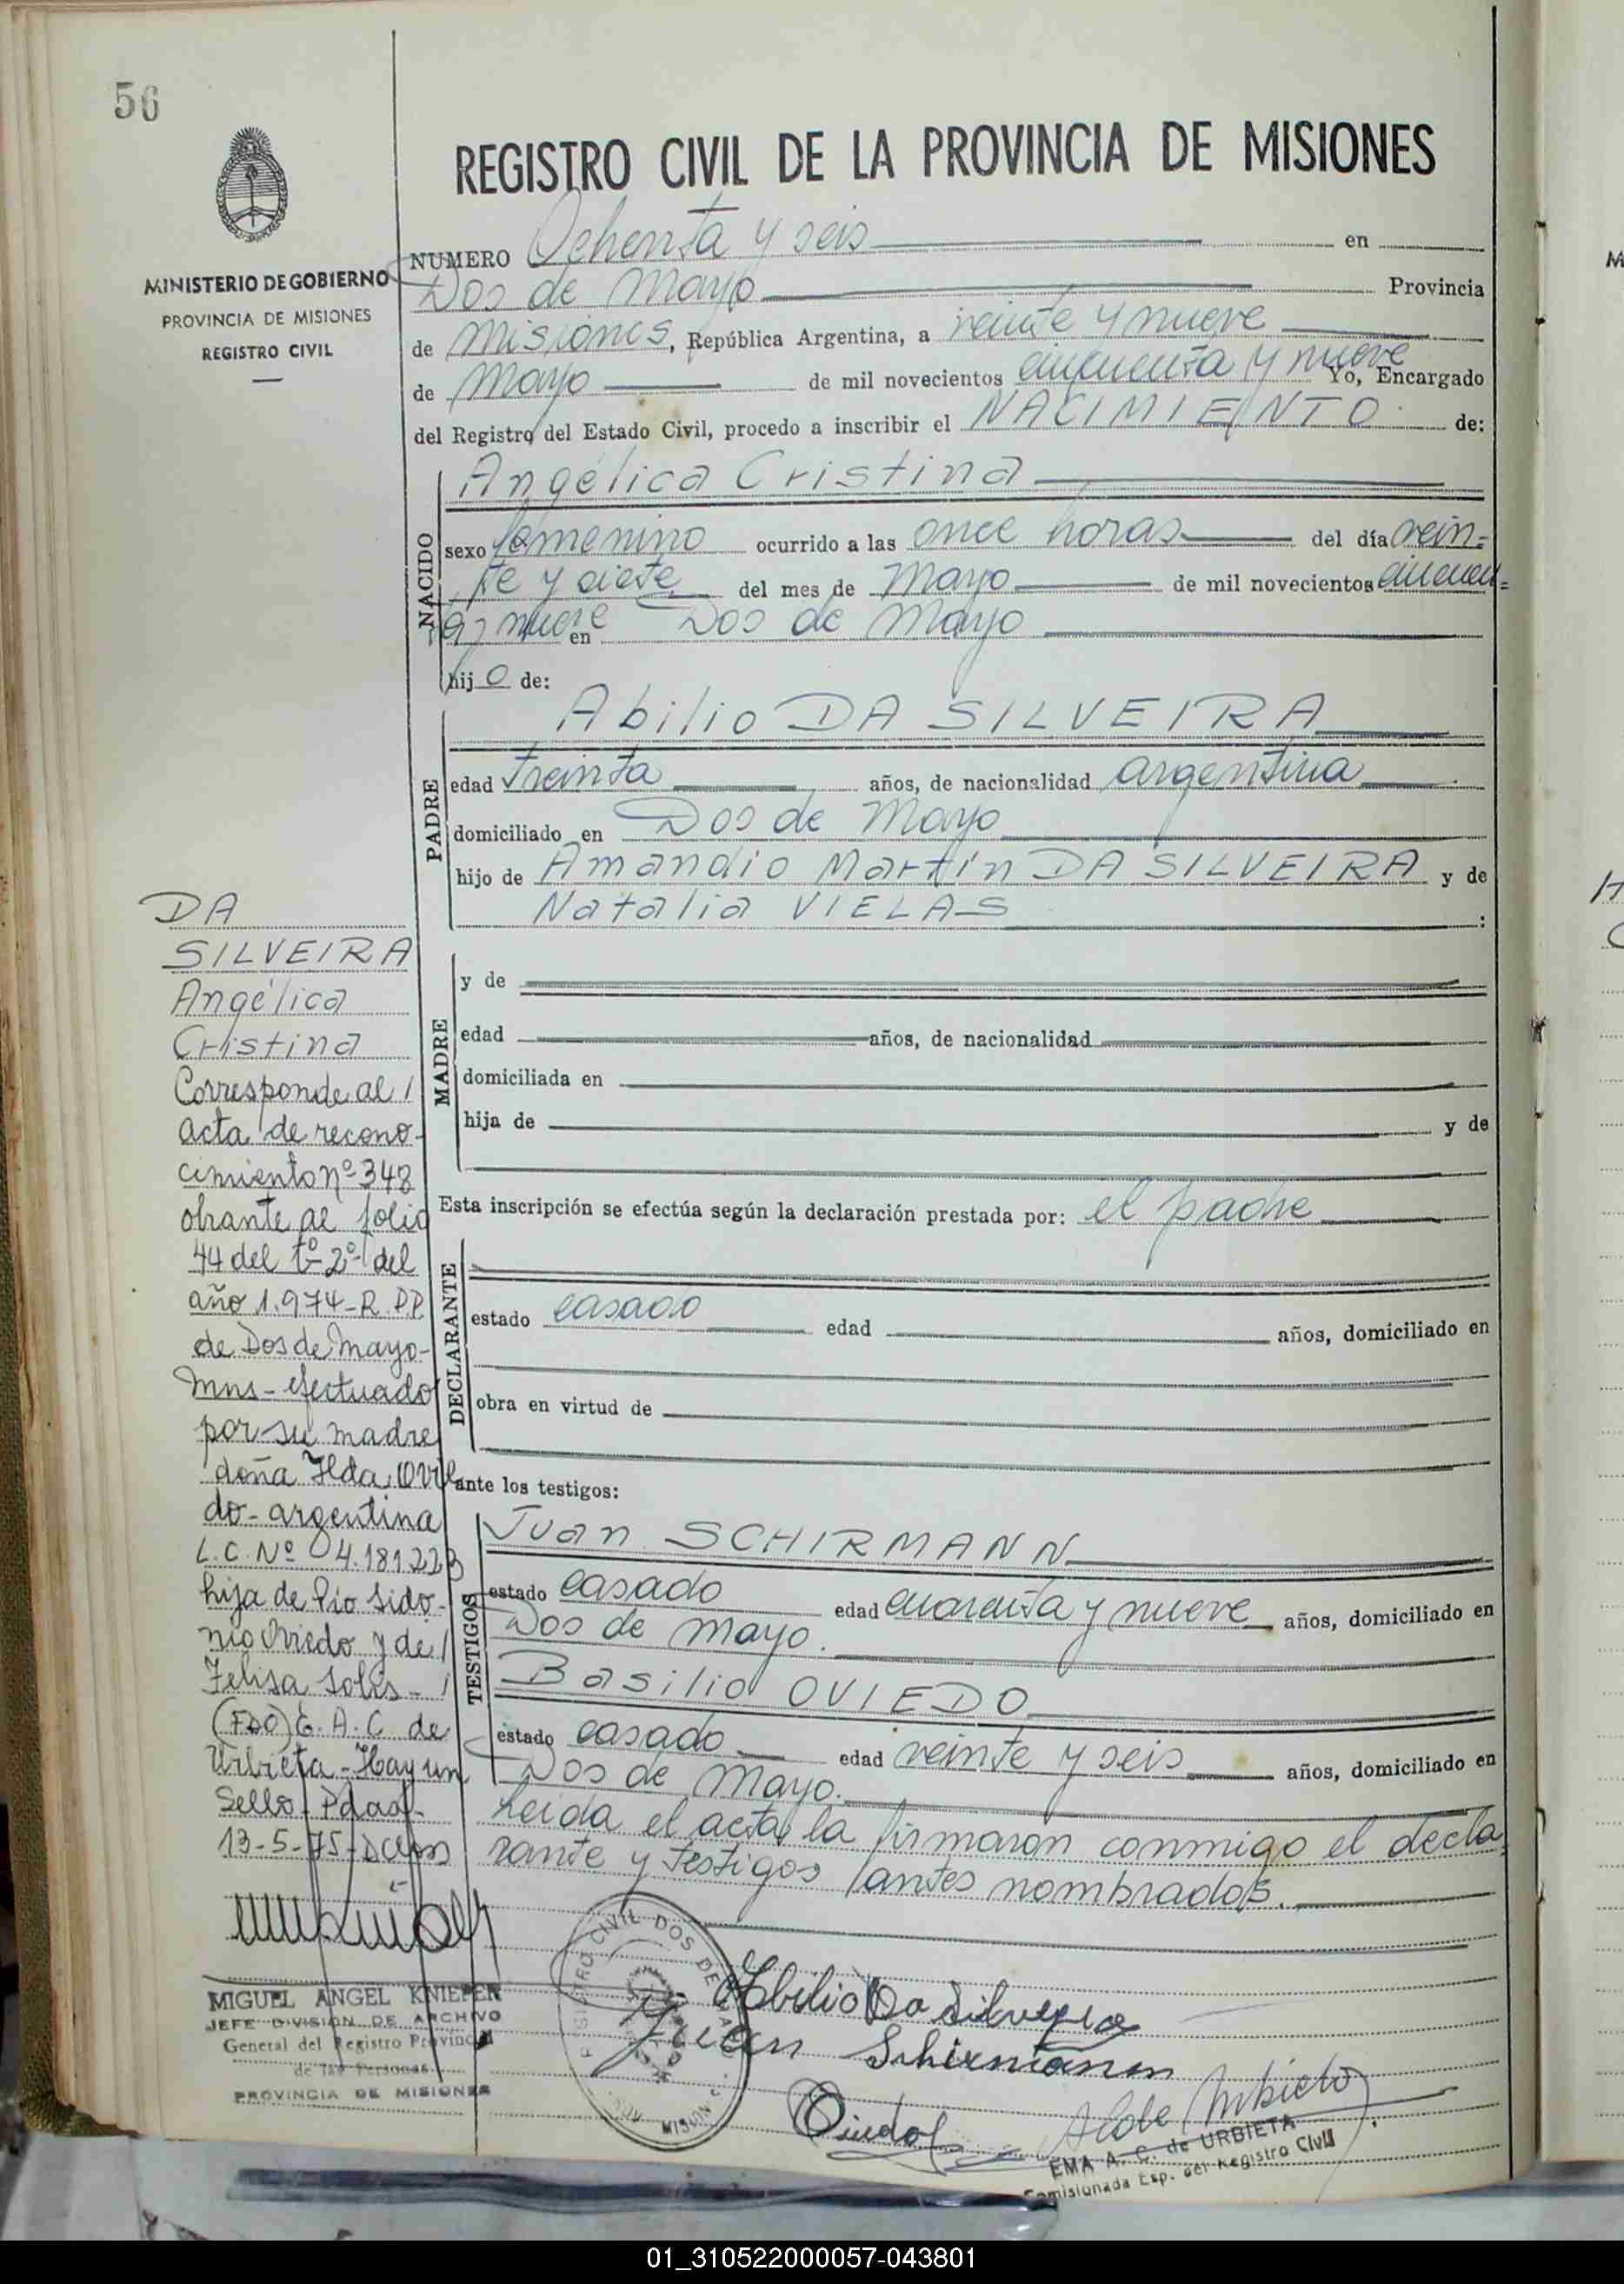 56
REGISTRO CIVIL DE LA PROVINCIA DE MISIONES
MINISTERIO DE GOBIERNO
PROVINCIA DE MISIONES
REGISTRO CIVIL
NUMERO Ochenta y seis en
Dos de Mayo Provincia
de Misiones, República Argentina, a veinte y nueve
de Mayo de mil novecientos cincuenta y nueve Yo, Encargado
del Registro del Estado Civil, procedo a inscribir el NACIMIENTO de:
NACIDO
Angélica Cristina
sexo femenino ocurrido a las once horas del día vein-
te y siete del mes de Mayo de mil novecientos cincuen-
ta y nueve en Dos de Mayo
hijo de:
PADRE
Abilio DA SILVEIRA
edad treinta años, de nacionalidad argentina
domiciliado en Dos de Mayo
hijo de Amandio Martín DA SILVEIRA y de
Natalia VIELAS :
MADRE
y de
edad años, de nacionalidad
domiciliada en
hija de y de
Esta inscripción se efectúa según la declaración prestada por: el padre
DECLARANTE
estado casado edad años, domiciliado en
obra en virtud de
ante los testigos:
TESTIGOS
Juan SCHIRMANN
estado casado edad cuarenta y nueve años, domiciliado en
Dos de Mayo.
Basilio OVIEDO
estado casado edad veinte y seis años, domiciliado en
Dos de Mayo.
Leida el acta la firmaron conmigo el decla-
rante y testigos antes nombrados.
DA
SILVEIRA
Angélica
Cristina
Corresponde al
acta de recono-
cimiento nº 348
obrante al folio
44 del tº 2º del
año 1.974-R.P.P.
de Dos de Mayo-
Mns- efectuado
por su madre
doña Ilda Ovie
do- argentina
L.C. Nº 04.181.223
hija de Pío Sido-
nio Oviedo y de
Felisa Solis-
(FDO) E.A.C. de
Urbieta-Hay un
Sello Pdas-
13-5-75-
MIGUEL ANGEL KNIEPER
JEFE DIVISION DE ARCHIVO
General del Registro Provincial
de las Personas
PROVINCIA DE MISIONES
REGISTRO CIVIL DOS DE MAYO
MISION
Abilio Da Silveira
Juan Schirmann
Oviedo
EMA A. C. de URBIETA
Comisionada Esp. del Registro Civil
01_310522000057-043801